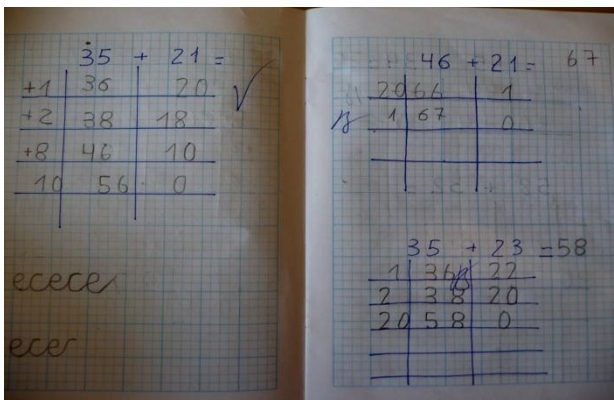 35 + 21 =
+1 36 20
+2 38 18
+8 46 10
10 56 0
ececer
ecer
46 + 21 = 67
20 66 1
1 67 0
35 + 23 = 58
1 36 22
2 38 20
20 58 0